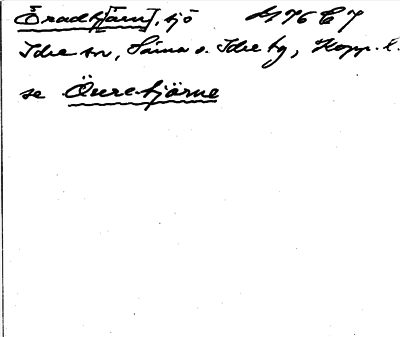 Öradtj[ärn], sjö 476 C7
Idre sn, Särna o. Idre tg, Kopp. l.
se Övretjärne